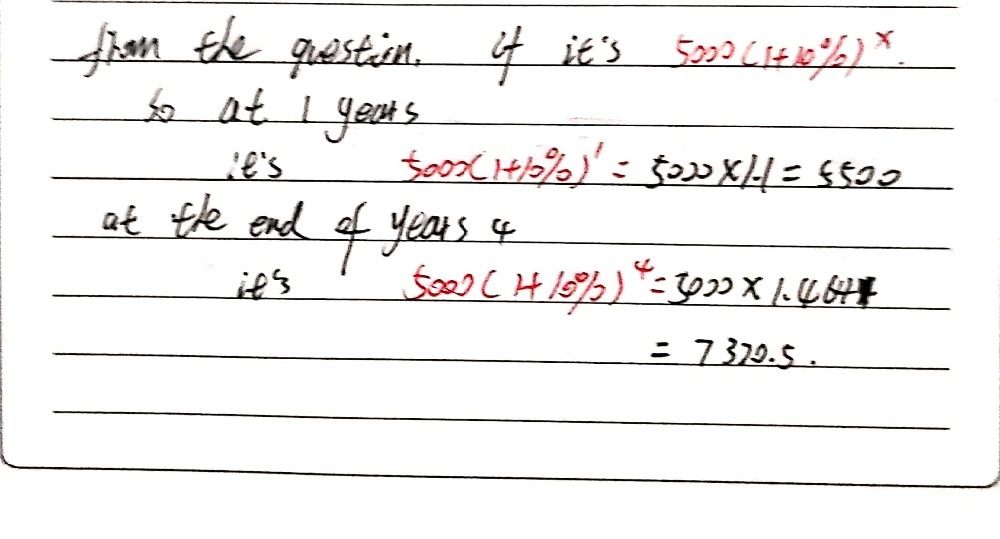 from the question. if it's 5000(1+10%)^x.
so at 1 years
it's 5000(1+10%)^1 = 5000×1.1 = 5500
at the end of years 4
it's 5000(1+10%)^4 = 5000×1.4641
= 7320.5.